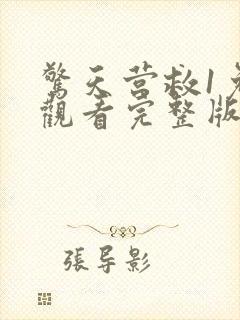 驚天营救1免
觀看完整版
張导影